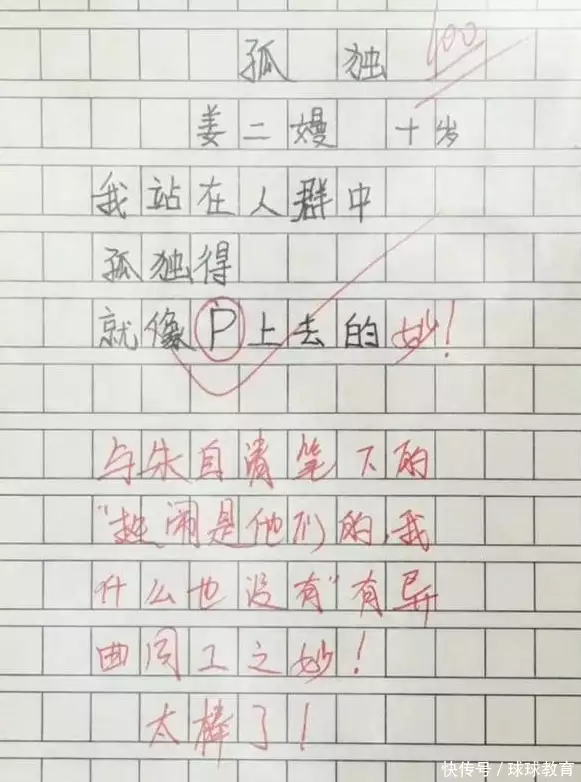 孤独
100
姜二嫚 十岁
我站在人群中
孤独得
就像P上去的 妙!
与朱自清笔下的
"热闹是他们的,我
什么也没有"有异
曲同工之妙!
太棒了!
快传号/球球教育